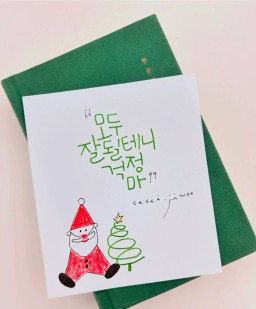 "모두
잘될테니
걱정
마"